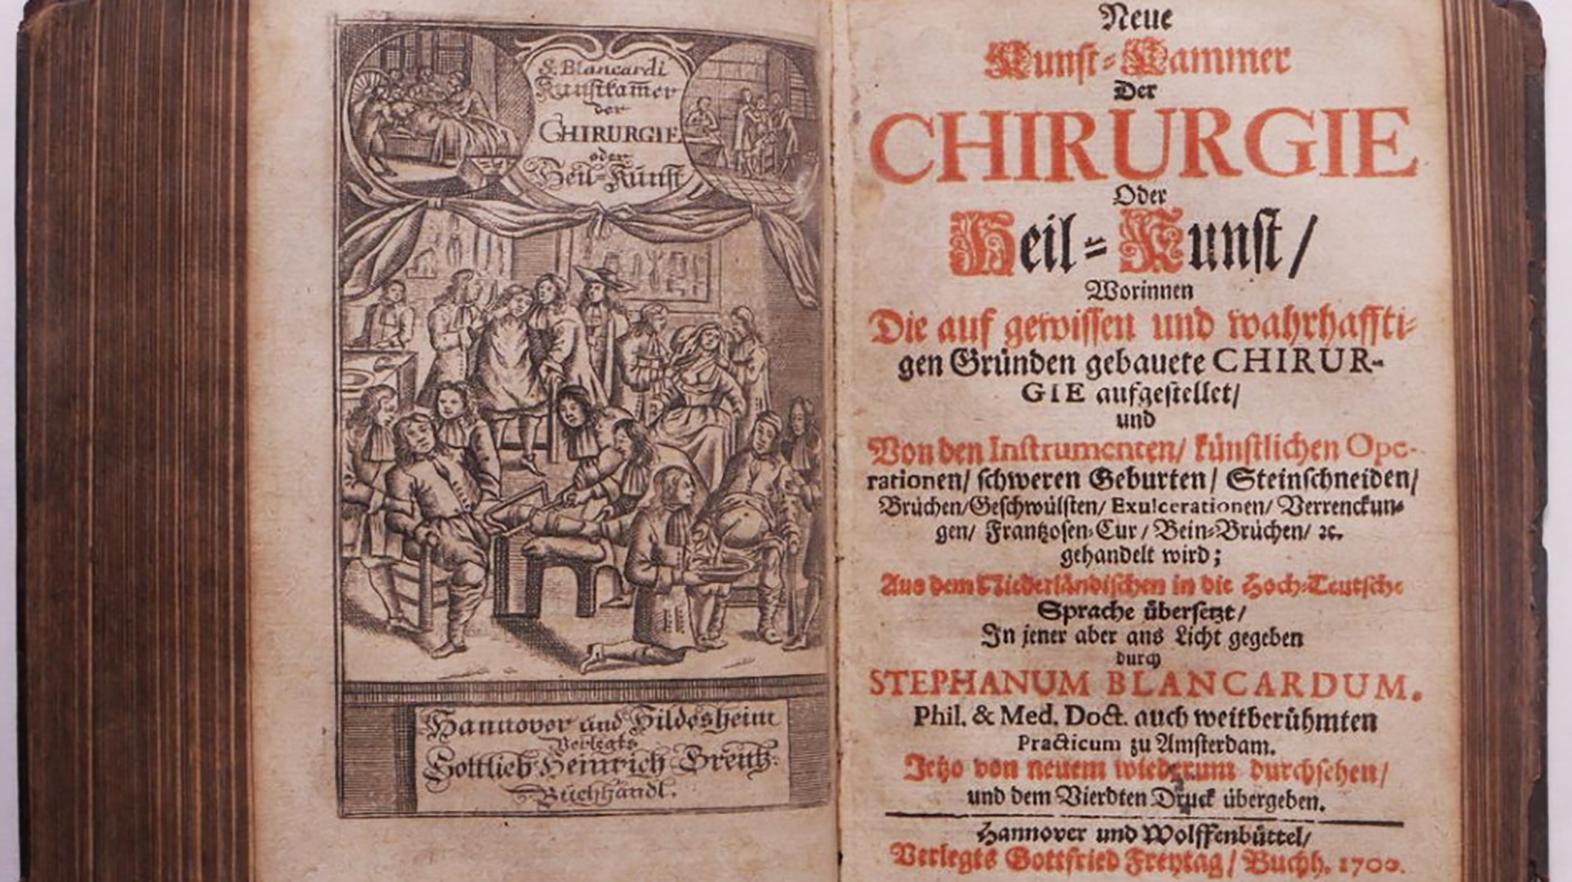 S. Blancardi
Kunstkam̄er
der
CHIRURGIE
oder
Heil=Kunst
Hannover und Hildesheim
Verlegts
Gottlieb Heinrich Grentz.
Buchhandl.
Neue
Kunst=Kammer
Der
CHIRURGIE
Oder
Heil=Kunst/
Worinnen
Die auf gewissen und wahrhaffti=
gen Gründen gebauete CHIRUR-
GIE aufgestellet/
und
Von den Instrumenten/ künstlichen Ope-
rationen/ schweren Geburten/ Steinschneiden/
Brüchen/Geschwülsten/ Exulcerationen/ Verrenckun=
gen/ Frantzosen=Cur/ Bein=Brüchen/ ꝛc.
gehandelt wird;
Aus dem Niederländischen in die Hoch=Teutsche
Sprache übersetzt/
In jener aber ans Licht gegeben
durch
STEPHANUM BLANCARDUM.
Phil. & Med. Doct. auch weitberühmten
Practicum zu Amsterdam.
Jetzo von neuem wiederum durchsehen/
und dem Vierdten Druck übergeben.
Hannover und Wolffenbüttel/
Verlegts Gottfried Freytag/ Buchh. 1700.